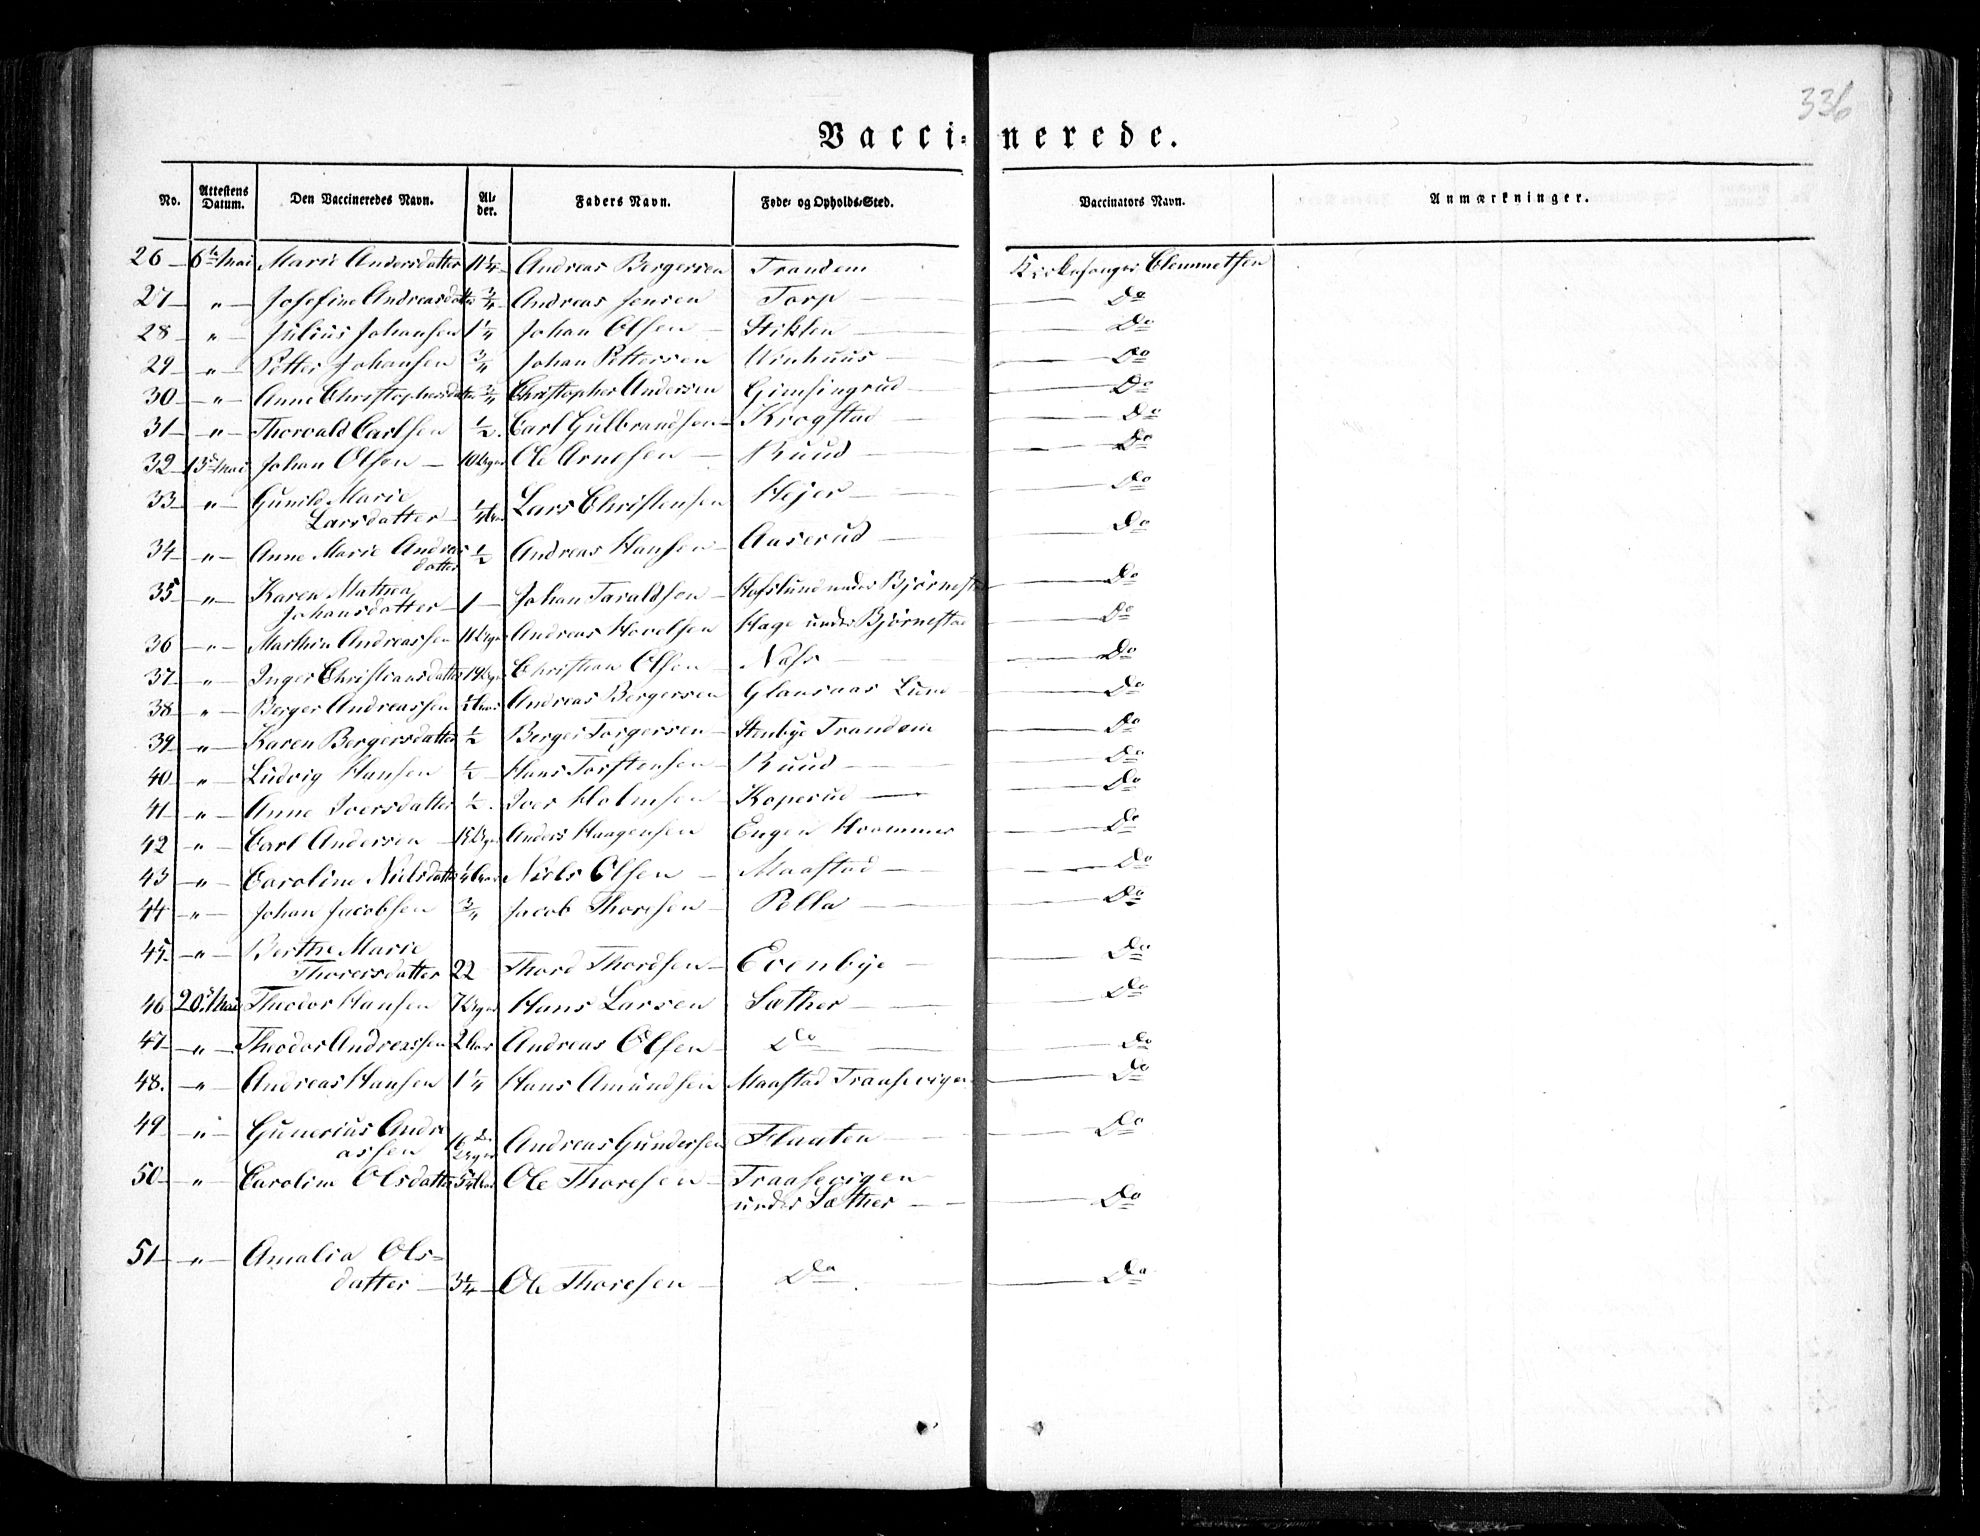 336
Vacci-nerede.
No. Attestens Datum. Den Vaccineredes Navn. Al-der. Faders Navn. Føde- og Opholds-Sted. Vaccinators Navn. Anmærkninger.
26 — 6te Mai Marie Andersdatter Andreas Bergersen Trandem Kirkesanger Clemmetsen
27 — " — Josefine Andreasdatter 3/4 Andreas Jensen Torp — Do
28 — " — Julius Johansen 1 1/4 Johan Olsen — Stiklen — Do
29 — " — Petter Johansen 3/4 Johan Pettersen — Do
30 — " — Anne Christophersdatter 3/4 Christopher Andersen Gimsingrud — Do
31 — " — Thorvald Carlsen 1/2 Carl Gulbrandsen — Krogstad — Do
32 — 13de Mai Johan Olsen — 10 Uger Ole Arnesen — Ruud — Do
33 — " — Gunild Marie
Larsdatter — Lars Christensen Hejer — Do
34 — " — Anne Marie Andreas
datter 1/2 Andreas Hansen — Aaserud — Do
35 — " — Karen Mathea
Johansdatter — 1 — Johan Taraldsen — Hofslund under Bjørnest — Do
36 — " — Marthin Andreassen 11 Uger Andreas Hovelsen Hage under Bjørnestad — Do
37 — " — Inger Christiansdatter Christian Olsen — Næss — Do
38 — " — Berger Andreassen Andreas Bergersen Lund — Do
39 — " — Karen Bergersdatter 1/2 Berger Torgersen — Stenbye Trandem — Do
40 — " — Ludvig Hansen 1/2 — Hans Torstensen — Ruud — Do
41 — " — Anne Iversdatter 1/2 . Iver Holmsen — Koperud — Do
42 — " — Carl Andersen — Anders Haagensen Engen — Do
43 — " — Caroline Nielsdatter Niels Olsen — Maastad — Do
44 — " — Johan Jacobsen 3/4 Jacob Thoresen — Pella — Do
45 — " — Berthe Marie
Thorersdatter 22 Thord Thordsen — Evenbye — Do
46 20de Mai Theodor Hansen 7 Uger Hans Larsen Sæther — Do
47 — " — Theodor Andreassen 2 Aar Andreas Olsen — Do — Do
48. — " — Andreas Hansen 1 1/4 Hans Amundsen Maastad Traasevigen — Do
49 — " — Gunerius Andre
assen 16 Uger Andreas Gundersen Flaaten — Do
50 — " — Caroline Olsdatter Ole Thoresen — Traasevigen
under Sæther — Do
51 — " — Amalia Ols=
datter — 3 1/4 — Ole Thoresen — Do — Do